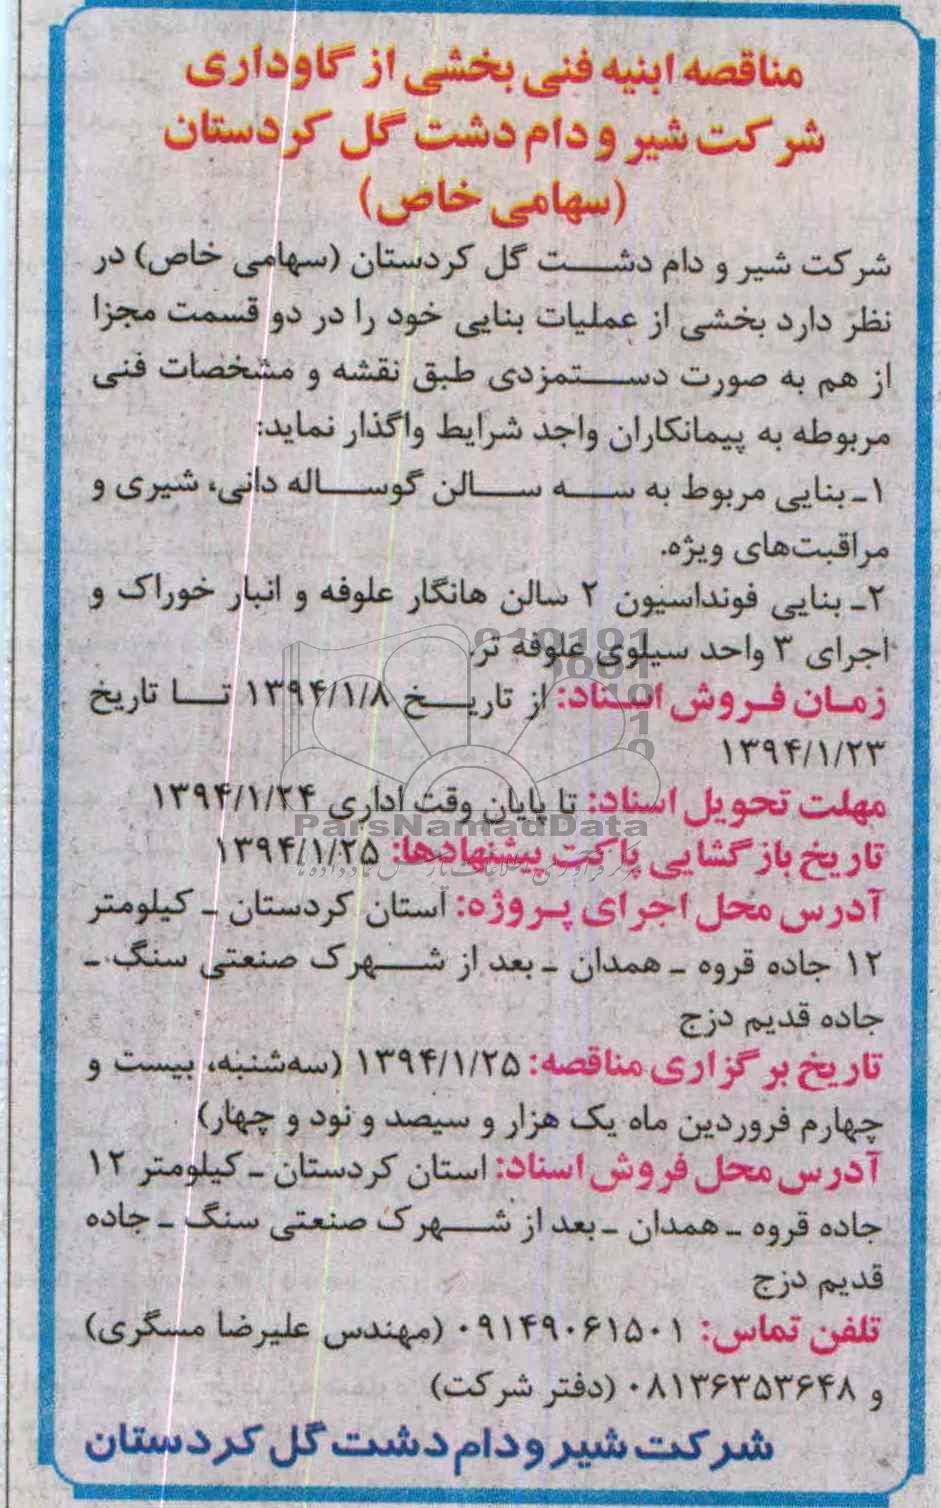 مناقصه ابنیه فنی بخشی از گاوداری
شرکت شیر و دام دشت گل کردستان
(سهامی خاص)
شرکت شیر و دام دشت گل کردستان (سهامی خاص) در
نظر دارد بخشی از عملیات بنایی خود را در دو قسمت مجزا
از هم به صورت دستمزدی طبق نقشه و مشخصات فنی
مربوطه به پیمانکاران واجد شرایط واگذار نماید:
۱ـ بنایی مربوط به سه سالن گوساله دانی، شیری و
مراقبت‌های ویژه.
۲ـ بنایی فونداسیون ۲ سالن هانگار علوفه و انبار خوراک و
اجرای ۳ واحد سیلوی علوفه تر.
زمان فروش اسناد: از تاریخ ۱۳۹۴/۱/۸ تا تاریخ
۱۳۹۴/۱/۲۳
مهلت تحویل اسناد: تا پایان وقت اداری ۱۳۹۴/۱/۲۴
ParsNamadData
تاریخ بازگشایی پاکت پیشنهادها: ۱۳۹۴/۱/۲۵
آدرس محل اجرای پروژه: استان کردستان ـ کیلومتر
۱۲ جاده قروه ـ همدان ـ بعد از شهرک صنعتی سنگ ـ
جاده قدیم دزج
تاریخ برگزاری مناقصه: ۱۳۹۴/۱/۲۵ (سه‌شنبه، بیست و
چهارم فروردین ماه یک هزار و سیصد و نود و چهار)
آدرس محل فروش اسناد: استان کردستان ـ کیلومتر ۱۲
جاده قروه ـ همدان ـ بعد از شهرک صنعتی سنگ ـ جاده
قدیم دزج
تلفن تماس: ۰۹۱۴۹۰۶۱۵۰۱ (مهندس علیرضا مسگری)
و ۰۸۱۳۶۳۵۳۶۴۸ (دفتر شرکت)
شرکت شیر و دام دشت گل کردستان